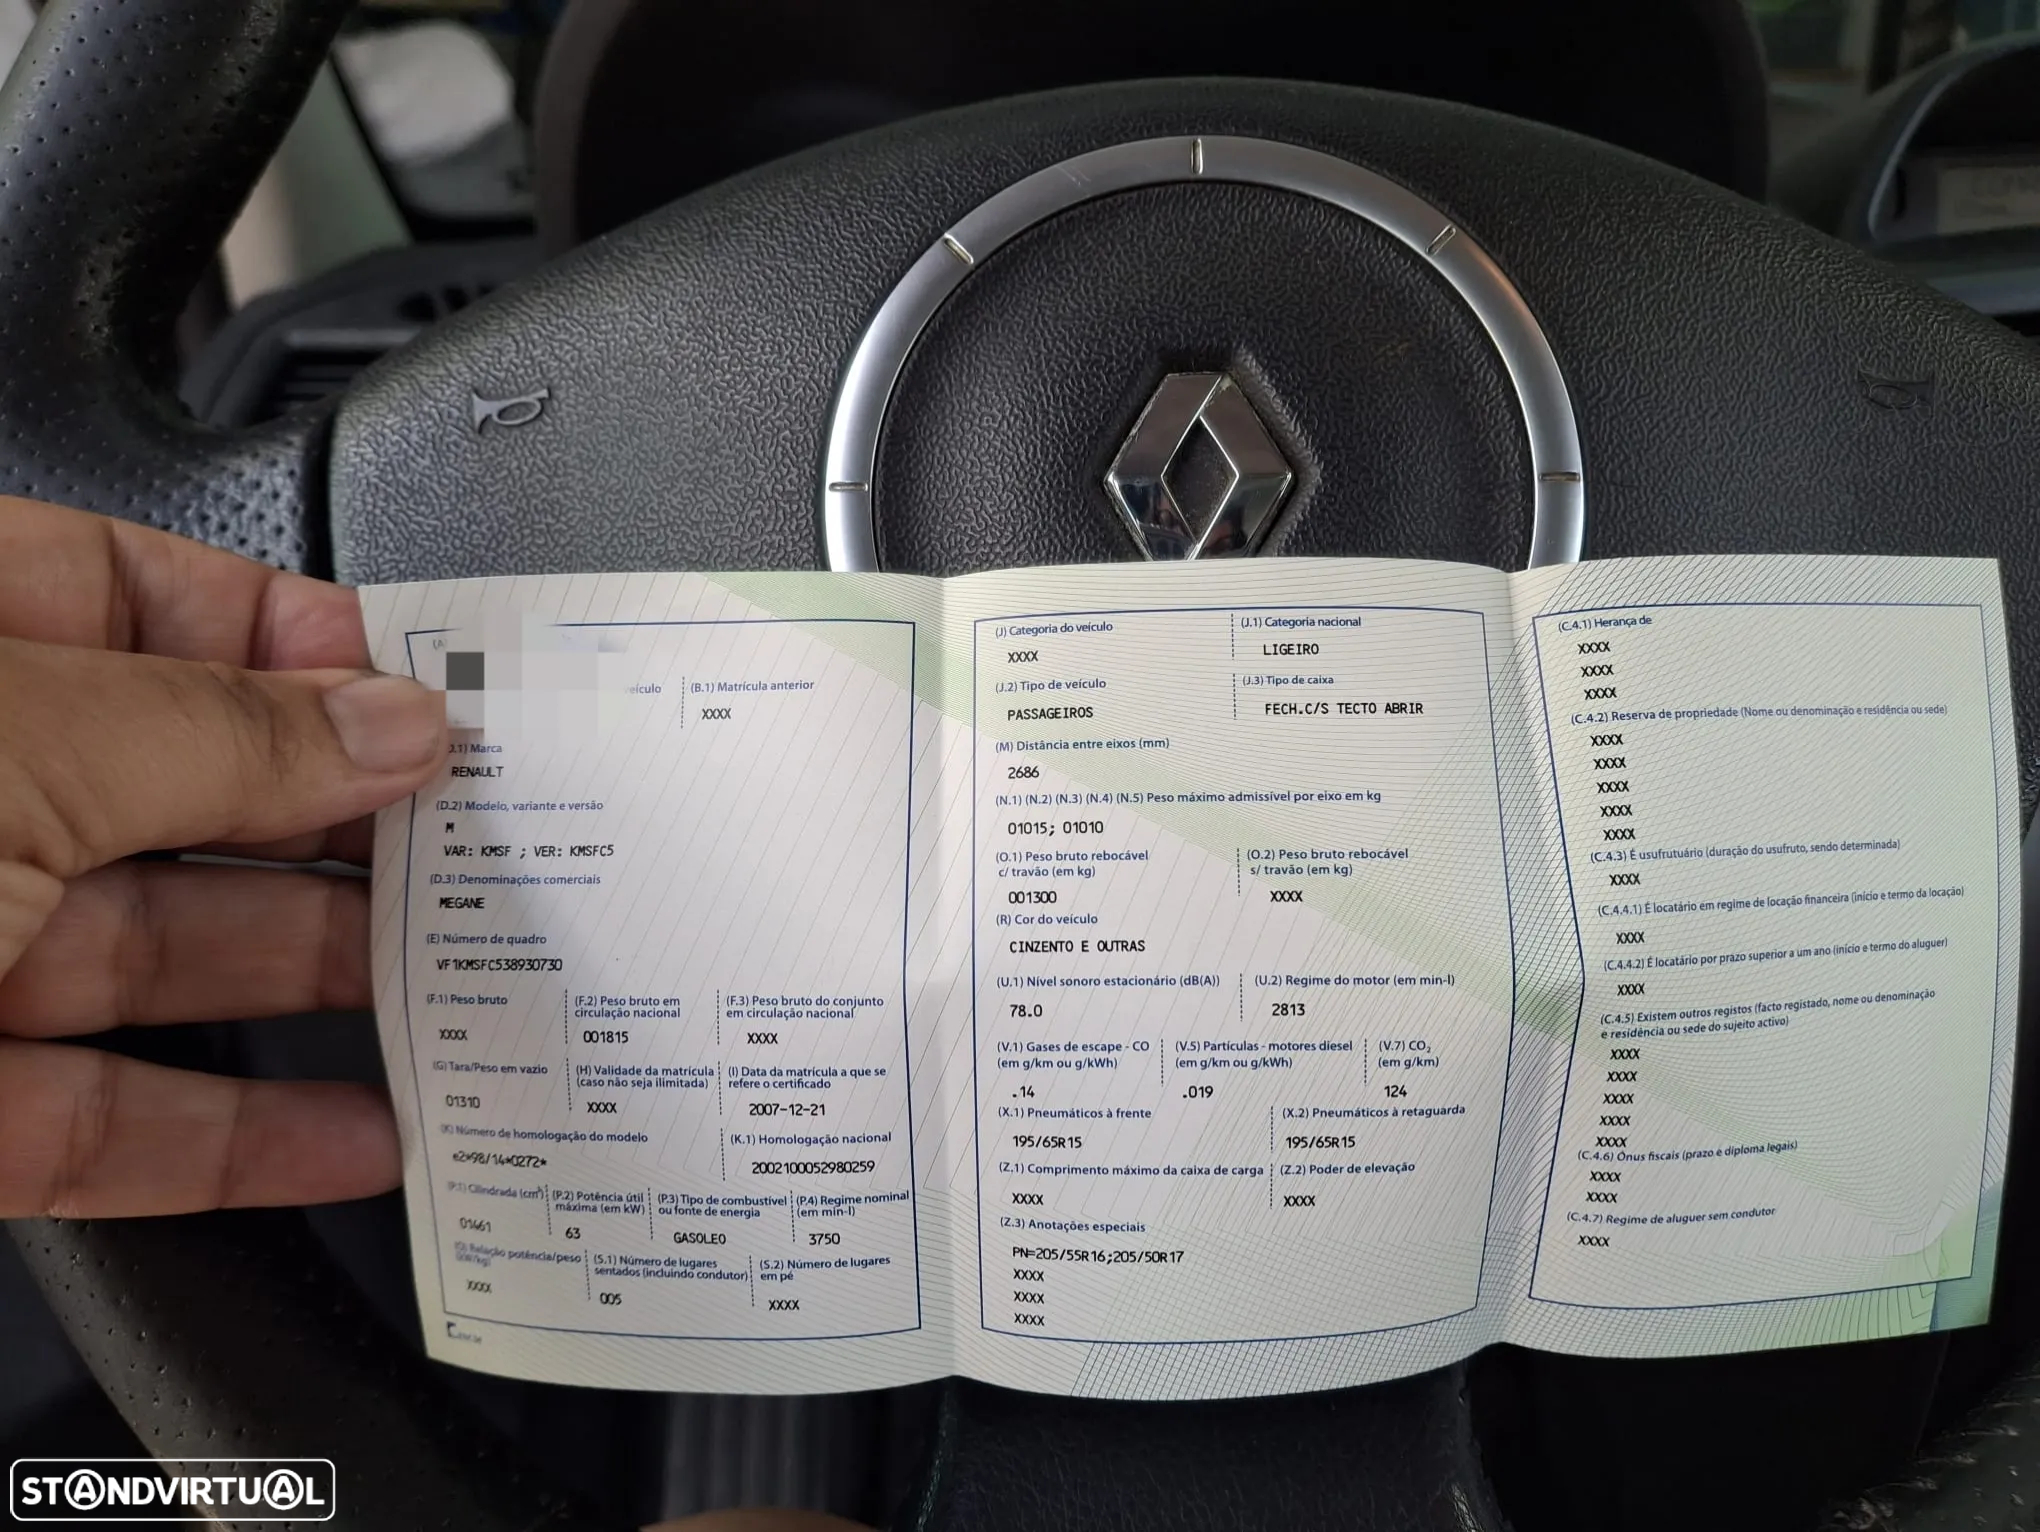 (A
eículo
(B.1) Matrícula anterior
XXXX
D.1) Marca
RENAULT
(D.2) Modelo, variante e versão
M
VAR: KMSF ; VER: KMSFC5
(D.3) Denominações comerciais
MEGANE
(E) Número de quadro
VF1KMSFC538930730
(F.1) Peso bruto
XXXX
(F.2) Peso bruto em
circulação nacional
001815
(F.3) Peso bruto do conjunto
em circulação nacional
XXXX
(G) Tara/Peso em vazio
01310
(H) Validade da matrícula
(caso não seja ilimitada)
XXXX
(I) Data da matrícula a que se
refere o certificado
2007-12-21
(K) Número de homologação do modelo
e2*98/14*0272*
(K.1) Homologação nacional
2002100052980259
(P.1) Cilindrada (cm³)
01461
(P.2) Potência útil
máxima (em kW)
63
(P.3) Tipo de combustível
ou fonte de energia
GASOLEO
(P.4) Regime nominal
(em min-l)
3750
(Q) Relação potência/peso
(kW/kg)
XXXX
(S.1) Número de lugares
sentados (incluindo condutor)
005
(S.2) Número de lugares
em pé
XXXX
(J) Categoria do veículo
XXXX
(J.1) Categoria nacional
LIGEIRO
(J.2) Tipo de veículo
PASSAGEIROS
(J.3) Tipo de caixa
FECH.C/S TECTO ABRIR
(M) Distância entre eixos (mm)
2686
(N.1) (N.2) (N.3) (N.4) (N.5) Peso máximo admissível por eixo em kg
01015; 01010
(O.1) Peso bruto rebocável
c/ travão (em kg)
001300
(O.2) Peso bruto rebocável
s/ travão (em kg)
XXXX
(R) Cor do veículo
CINZENTO E OUTRAS
(U.1) Nível sonoro estacionário (dB(A))
78.0
(U.2) Regime do motor (em min-l)
2813
(V.1) Gases de escape - CO
(em g/km ou g/kWh)
.14
(V.5) Partículas - motores diesel
(em g/km ou g/kWh)
.019
(V.7) CO₂
(em g/km)
124
(X.1) Pneumáticos à frente
195/65R15
(X.2) Pneumáticos à retaguarda
195/65R15
(Z.1) Comprimento máximo da caixa de carga
XXXX
(Z.2) Poder de elevação
XXXX
(Z.3) Anotações especiais
PN=205/55R16;205/50R17
XXXX
XXXX
XXXX
(C.4.1) Herança de
XXXX
XXXX
XXXX
(C.4.2) Reserva de propriedade (Nome ou denominação e residência ou sede)
XXXX
XXXX
XXXX
XXXX
XXXX
(C.4.3) É usufrutuário (duração do usufruto, sendo determinada)
XXXX
(C.4.4.1) É locatário em regime de locação financeira (início e termo da locação)
XXXX
(C.4.4.2) É locatário por prazo superior a um ano (início e termo do aluguer)
XXXX
(C.4.5) Existem outros registos (facto registado, nome ou denominação
e residência ou sede do sujeito activo)
XXXX
XXXX
XXXX
XXXX
XXXX
(C.4.6) Ónus fiscais (prazo e diploma legais)
XXXX
XXXX
(C.4.7) Regime de aluguer sem condutor
XXXX
STANDVIRTUAL